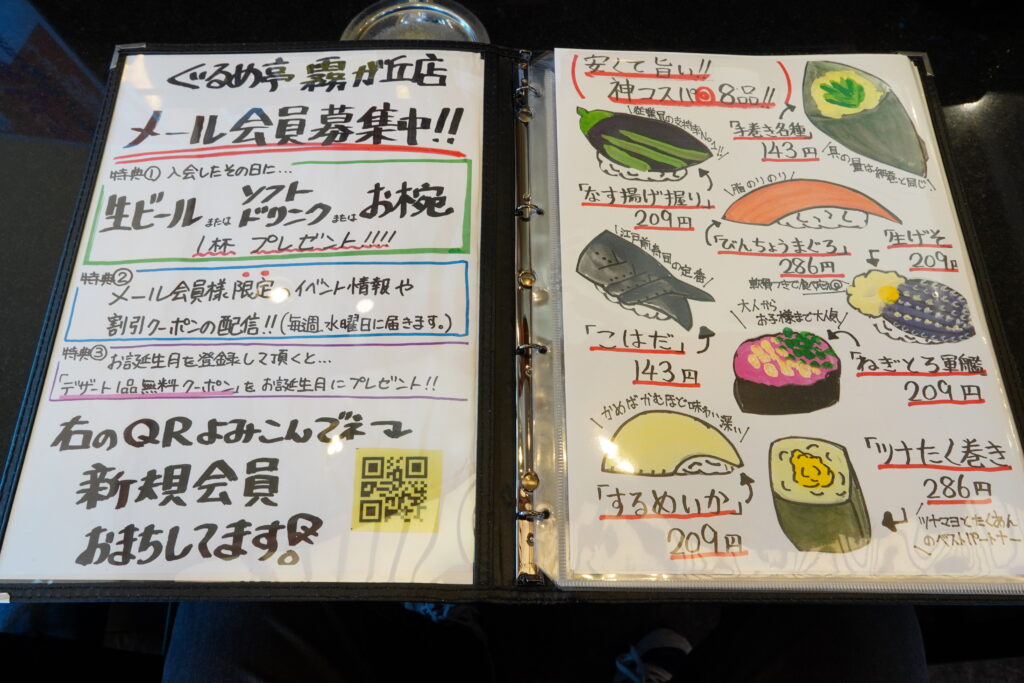 ぐるめ亭 霧が丘店
メール会員募集中!!
特典① 入会したその日に…
生ビール または ソフトドリンク または お椀
1杯 プレゼント!!!!
特典②
メール会員様限定のイベント情報や
割引クーポンの配信!!(毎週水曜日に届きます。)
特典③ お誕生月を登録して頂くと…
「デザート1品無料クーポン」をお誕生月にプレゼント!!
右のQRよみこんでネ
新規会員
おまちしてます
安くて旨い!!
神コスパ 8品!!
従業員の支持率No.1!!
「なす揚げ握り」
209円
「手巻き各種」
143円
具の量は細巻と同じ
脂のりのり
「びんちょうまぐろ」
286円
「生げそ」
209円
江戸前寿司の定番
「こはだ」
143円
大人から
お子様まで大人気
「ねぎとろ軍艦」
209円
かめばかむほど味わい深い
「するめいか」
209円
「ツナたく巻き」
286円
ツナマヨとたくあん
のベストパートナー